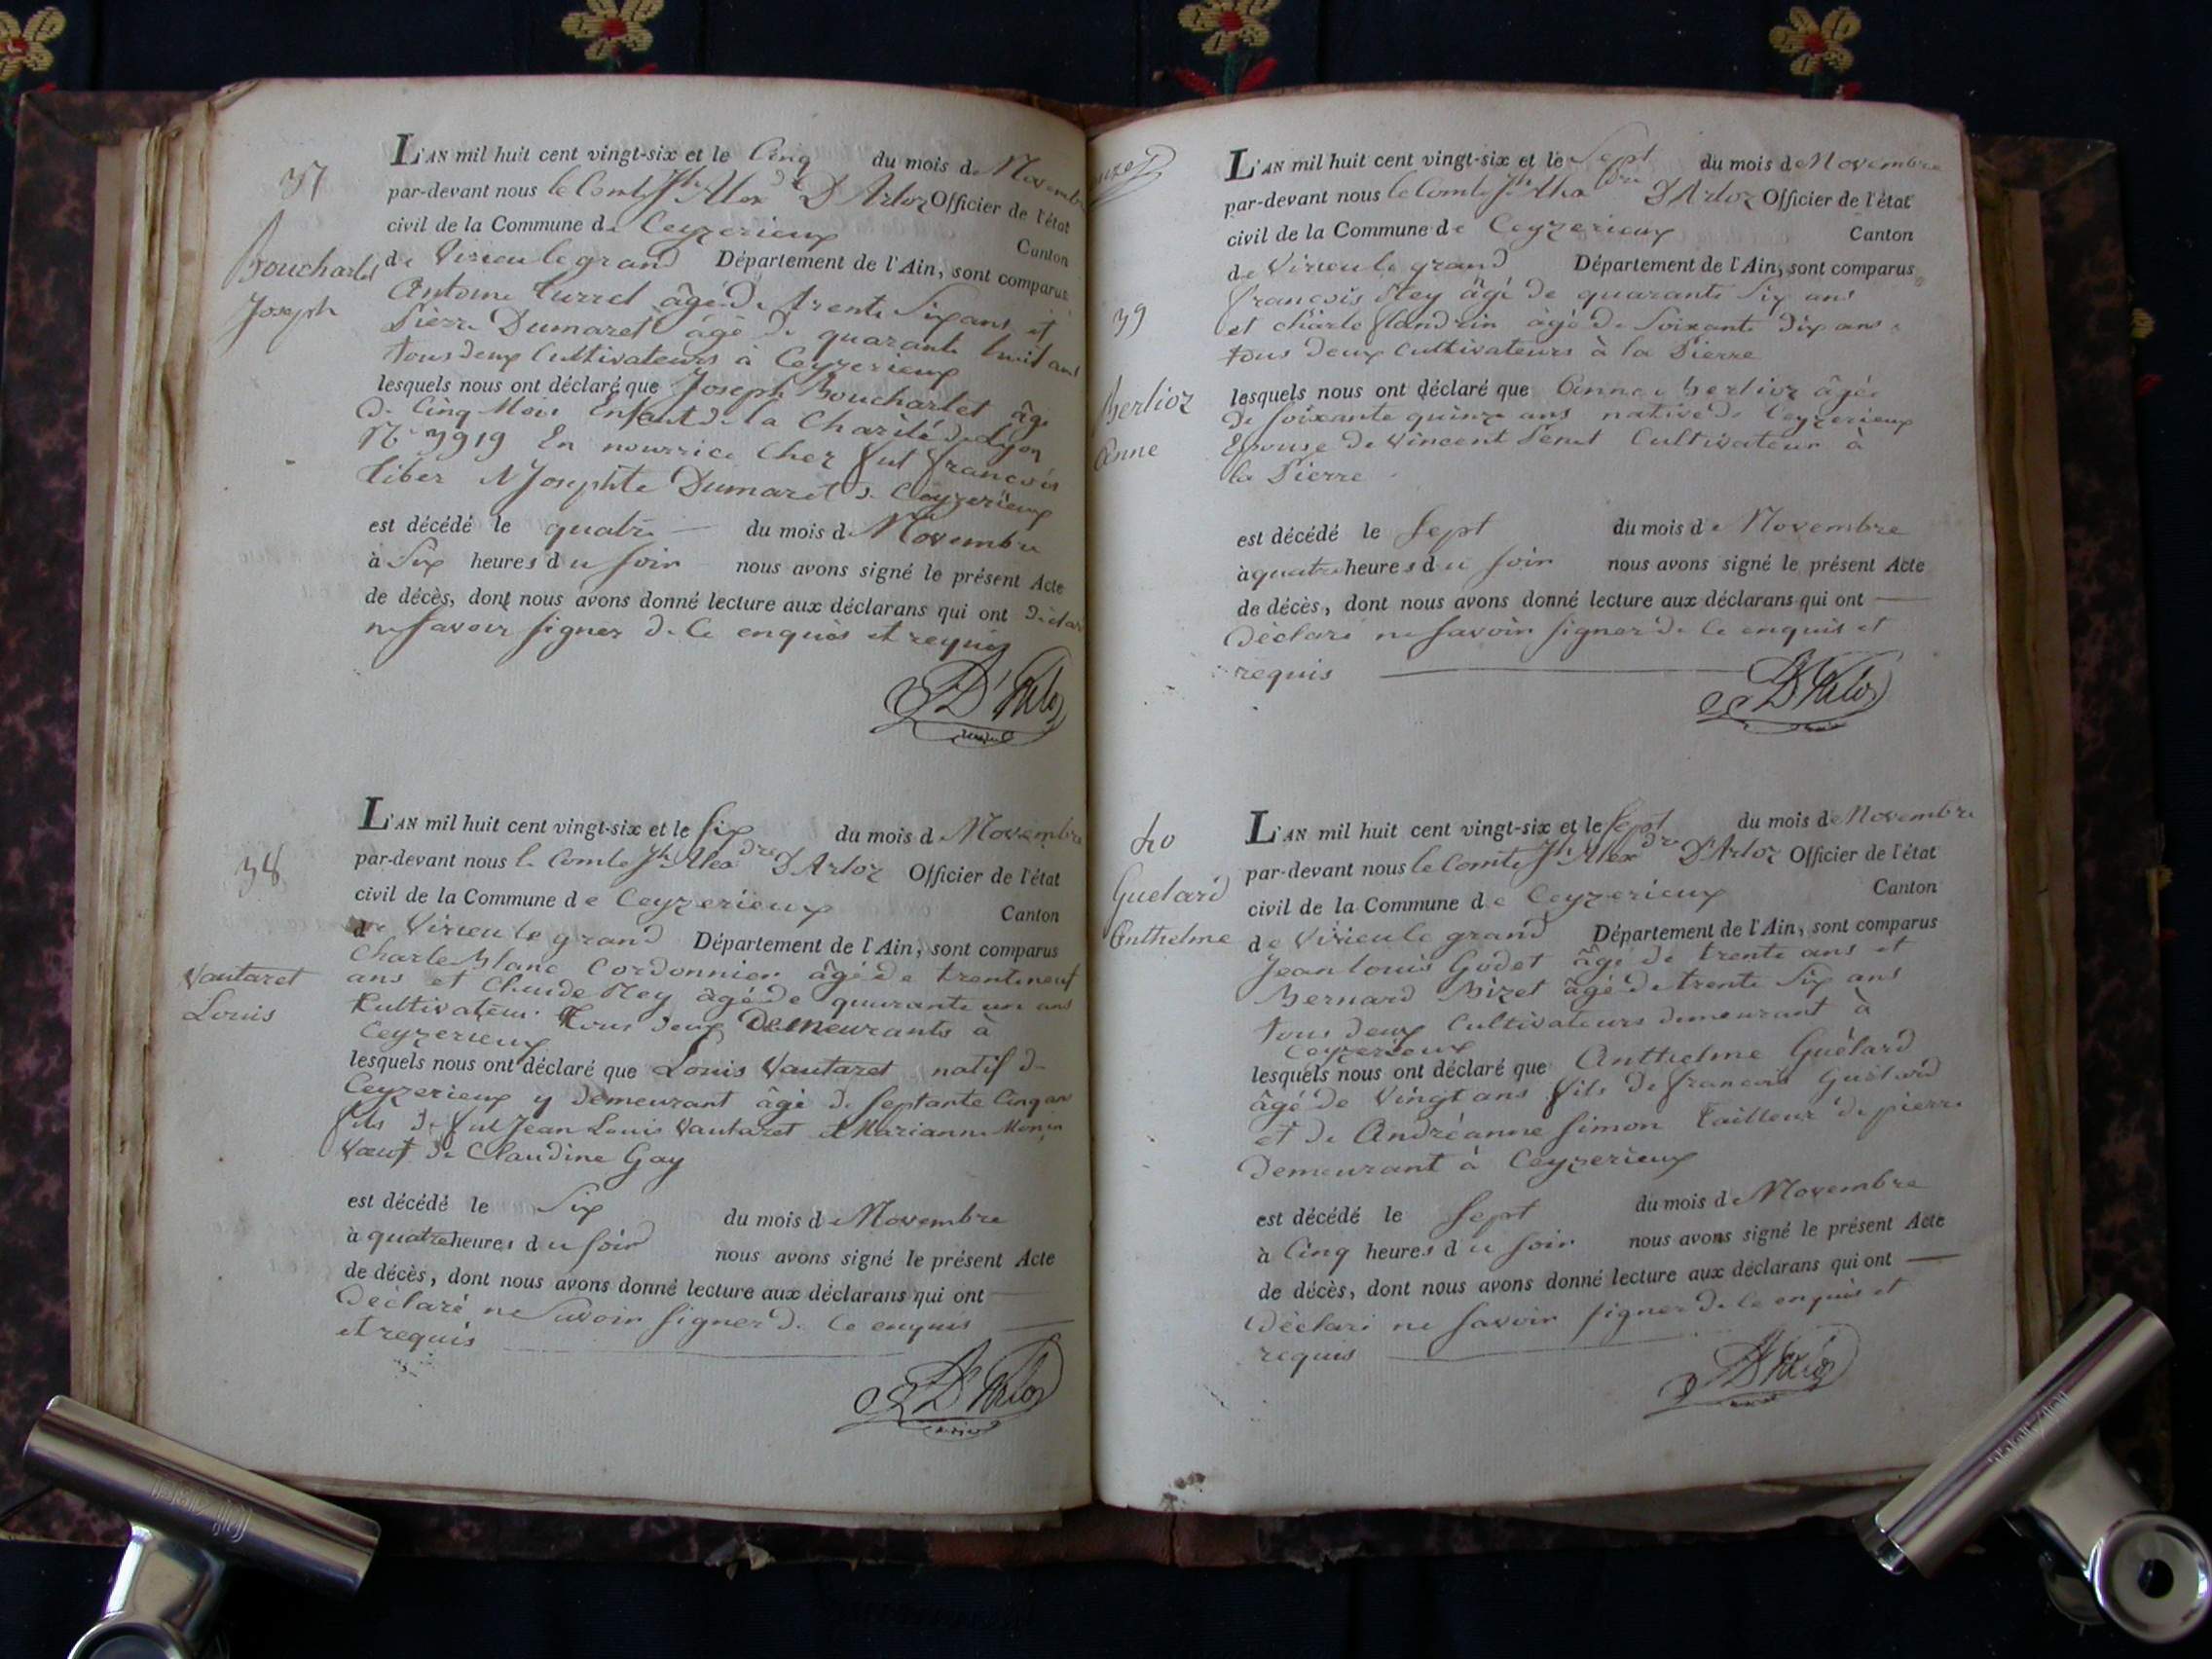 37
Bouchartet
Joseph
L'AN mil huit cent vingt-six et le Cinq du mois de Novembre
par-devant nous le Comte Jh Alexdre D'Arloz Officier de l'état
civil de la Commune de Ceyzerieux Canton
de Virieu le grand Département de l'Ain, sont comparus
Antoine Curret âgé de trente Six ans et
Pierre Dumaret âgé de quarante huit ans
tous deux Cultivateurs à Ceyzerieux
lesquels nous ont déclaré que Joseph Bouchartet âgé
de Cinq Mois Enfant de la Charité de Lyon
N° 3919 En nourrice Chez fut françois
tiber Josephte Dumaret de Ceyzerieux
est décédé le quatre du mois de Novembre
à Six heures du soir nous avons signé le présent Acte
de décès, dont nous avons donné lecture aux déclarans qui ont déclaré
ne savoir signer de Ce enquis et requis
D'Arloz
38
Vautaret
Louis
L'AN mil huit cent vingt-six et le six du mois de Novembre
par-devant nous le Comte Jh Alexdre D'Arloz Officier de l'état
civil de la Commune de Ceyzerieux Canton
de Virieu le grand Département de l'Ain, sont comparus
Charle Blanc Cordonnier âgé de trente neuf
ans et Claude Rey âgé de quarante un ans
Cultivateur Tous deux Demeurants à
Ceyzerieux
lesquels nous ont déclaré que Louis Vautaret natif de
Ceyzerieux y demeurant âgé de Septante Cinq ans
fils de fut Jean Louis Vautaret et Marianne Monin
Vœuf de Claudine Gay
est décédé le Six du mois de Novembre
à quatre heures du soir nous avons signé le présent Acte
de décès, dont nous avons donné lecture aux déclarans qui ont
Déclaré ne Savoir signer de Ce enquis
et requis
D'Arloz
L'AN mil huit cent vingt-six et le Sept du mois de Novembre
par-devant nous le Comte Jh Alexdre D'Arloz Officier de l'état
civil de la Commune de Ceyzerieux Canton
de Virieu le grand Département de l'Ain, sont comparus
39
Berlioz
Anne
françois Rey âgé de quarante Six ans
et Charle flandrin âgé de Soixante Dix ans
tous deux Cultivateurs à la Pierre
lesquels nous ont déclaré que Anne Berlioz âgée
de soixante quinze ans native de Ceyzerieux
Epouse de Vincent Penet Cultivateur à
la Pierre
est décédé le Sept du mois de Novembre
à quatre heures du soir nous avons signé le présent Acte
de décès, dont nous avons donné lecture aux déclarans qui ont
Déclaré ne savoir signer de Ce enquis et
requis
D'Arloz
40
Guelard
Anthelme
L'AN mil huit cent vingt-six et le Sept du mois de Novembre
par-devant nous le Comte Jh Alexdre D'Arloz Officier de l'état
civil de la Commune de Ceyzerieux Canton
de Virieu le grand Département de l'Ain, sont comparus
Jean louis Godet âgé de trente ans et
Bernard Bizet âgé de trente Six ans
tous deux Cultivateurs demeurant à
Ceyzerieux
lesquels nous ont déclaré que Anthelme Guélard
âgé de Vingt ans fils de françois Guélard
et de Andréanne Simon Tailleur de pierre
Demeurant à Ceyzerieux
est décédé le Sept du mois de Novembre
à Cinq heures du soir nous avons signé le présent Acte
de décès, dont nous avons donné lecture aux déclarans qui ont
Déclaré ne savoir signer de Ce enquis et
requis
D'Arloz